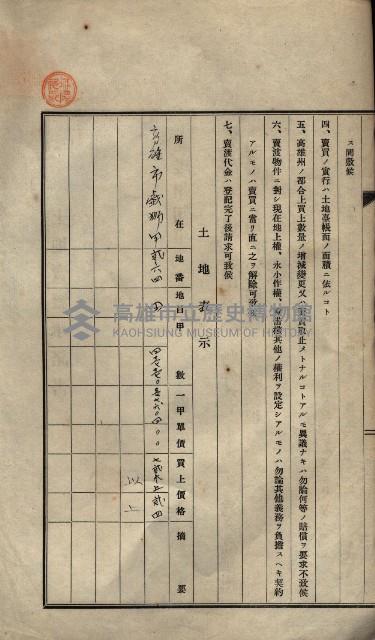 ス間敷候
四、賣買ノ實行ハ土地臺帳面ノ面積ニ依ルコト
五、高雄州ノ都合上買上數量ノ增減變更又ハ賣買取止メトナルコトアルモ異議ナキハ勿論何等ノ賠償ヲ要求不致候
六、賣渡物件ニ對シ現在地上權、永小作權、其他ノ權利ヲ設定シアルモノハ勿論其他義務ヲ負擔スヘキ契約
アルモノハ賣買ニ當リ直ニ之ヲ解除可致候
七、賣渡代金ハ登記完了後請求可致候
土地表示
所在 地番 地目 甲數 一甲單價 買上價格 摘要
高雄市 甲 貳六四 田
以上
高雄市立歷史博物館
KAOHSIUNG MUSEUM OF HISTORY